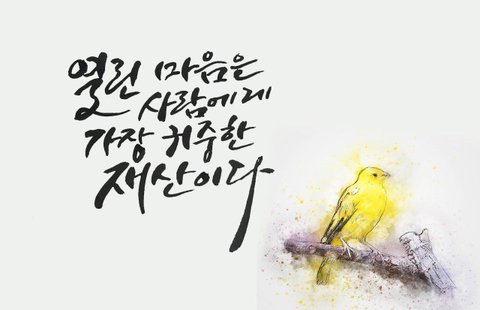 열린 마음은
사람에게
가장 귀중한
재산이다